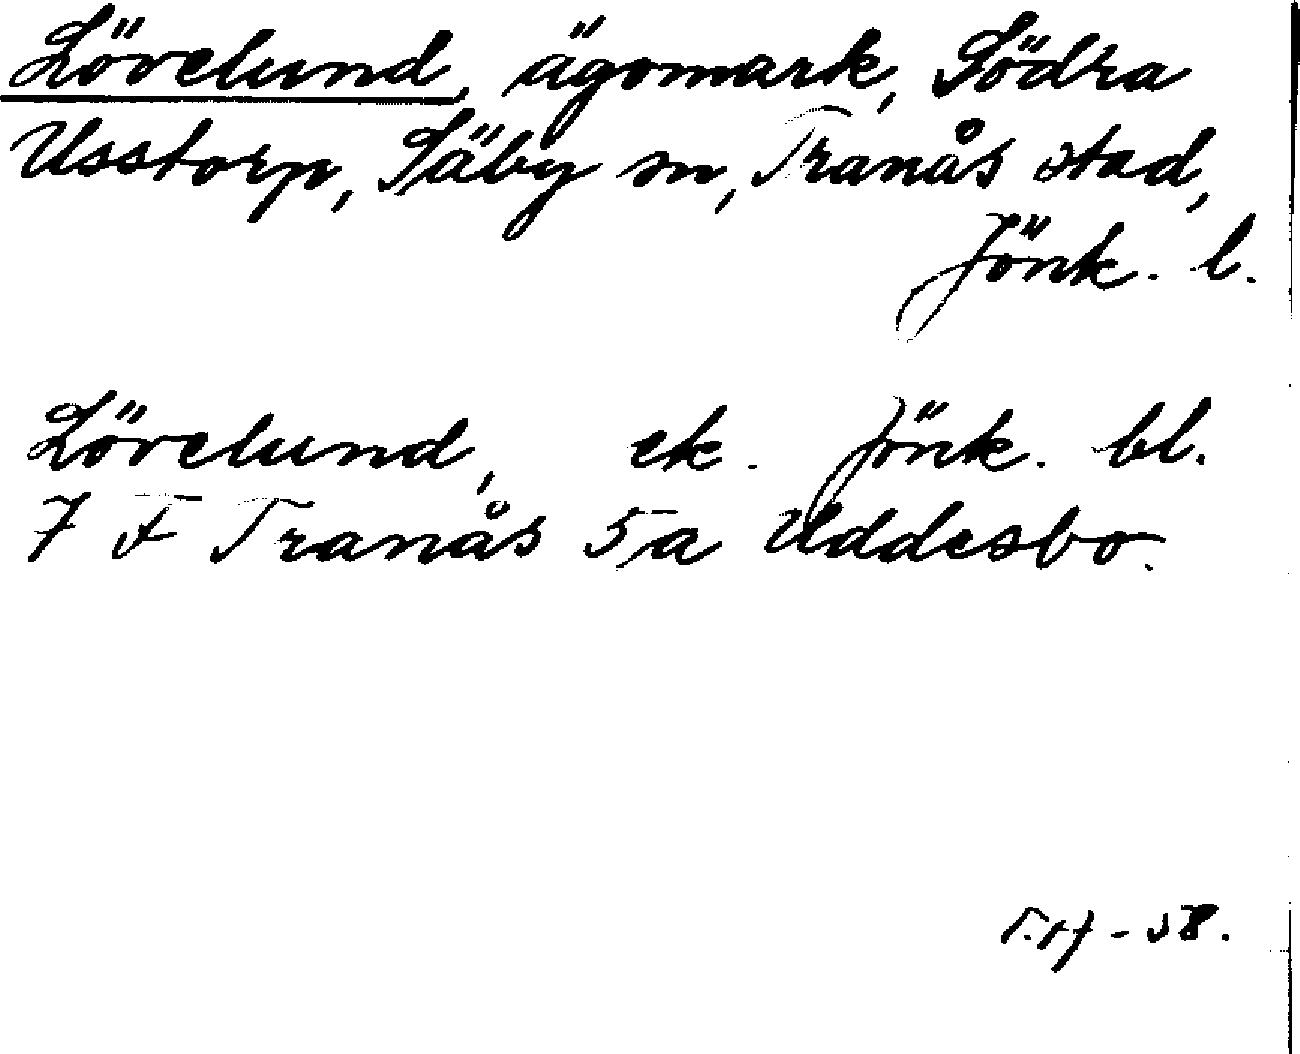 Lövelund, ägomark, Södra
Usstorp, Säby sn, Tranås stad,
Jönk. l.
Lövelund, ek. Jönk. bl.
7 F Tranås 5a Uddesbo.
-58.